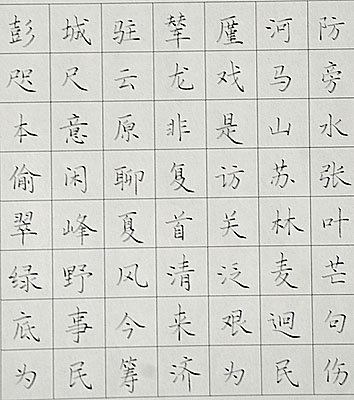 彭城驻辇厪河防
咫尺云龙戏马旁
本意原非是山水
偷闲聊复访苏张
翠峰夏首关林叶
绿野风清泛麦芒
底事今来艰迴句
为民筹济为民伤